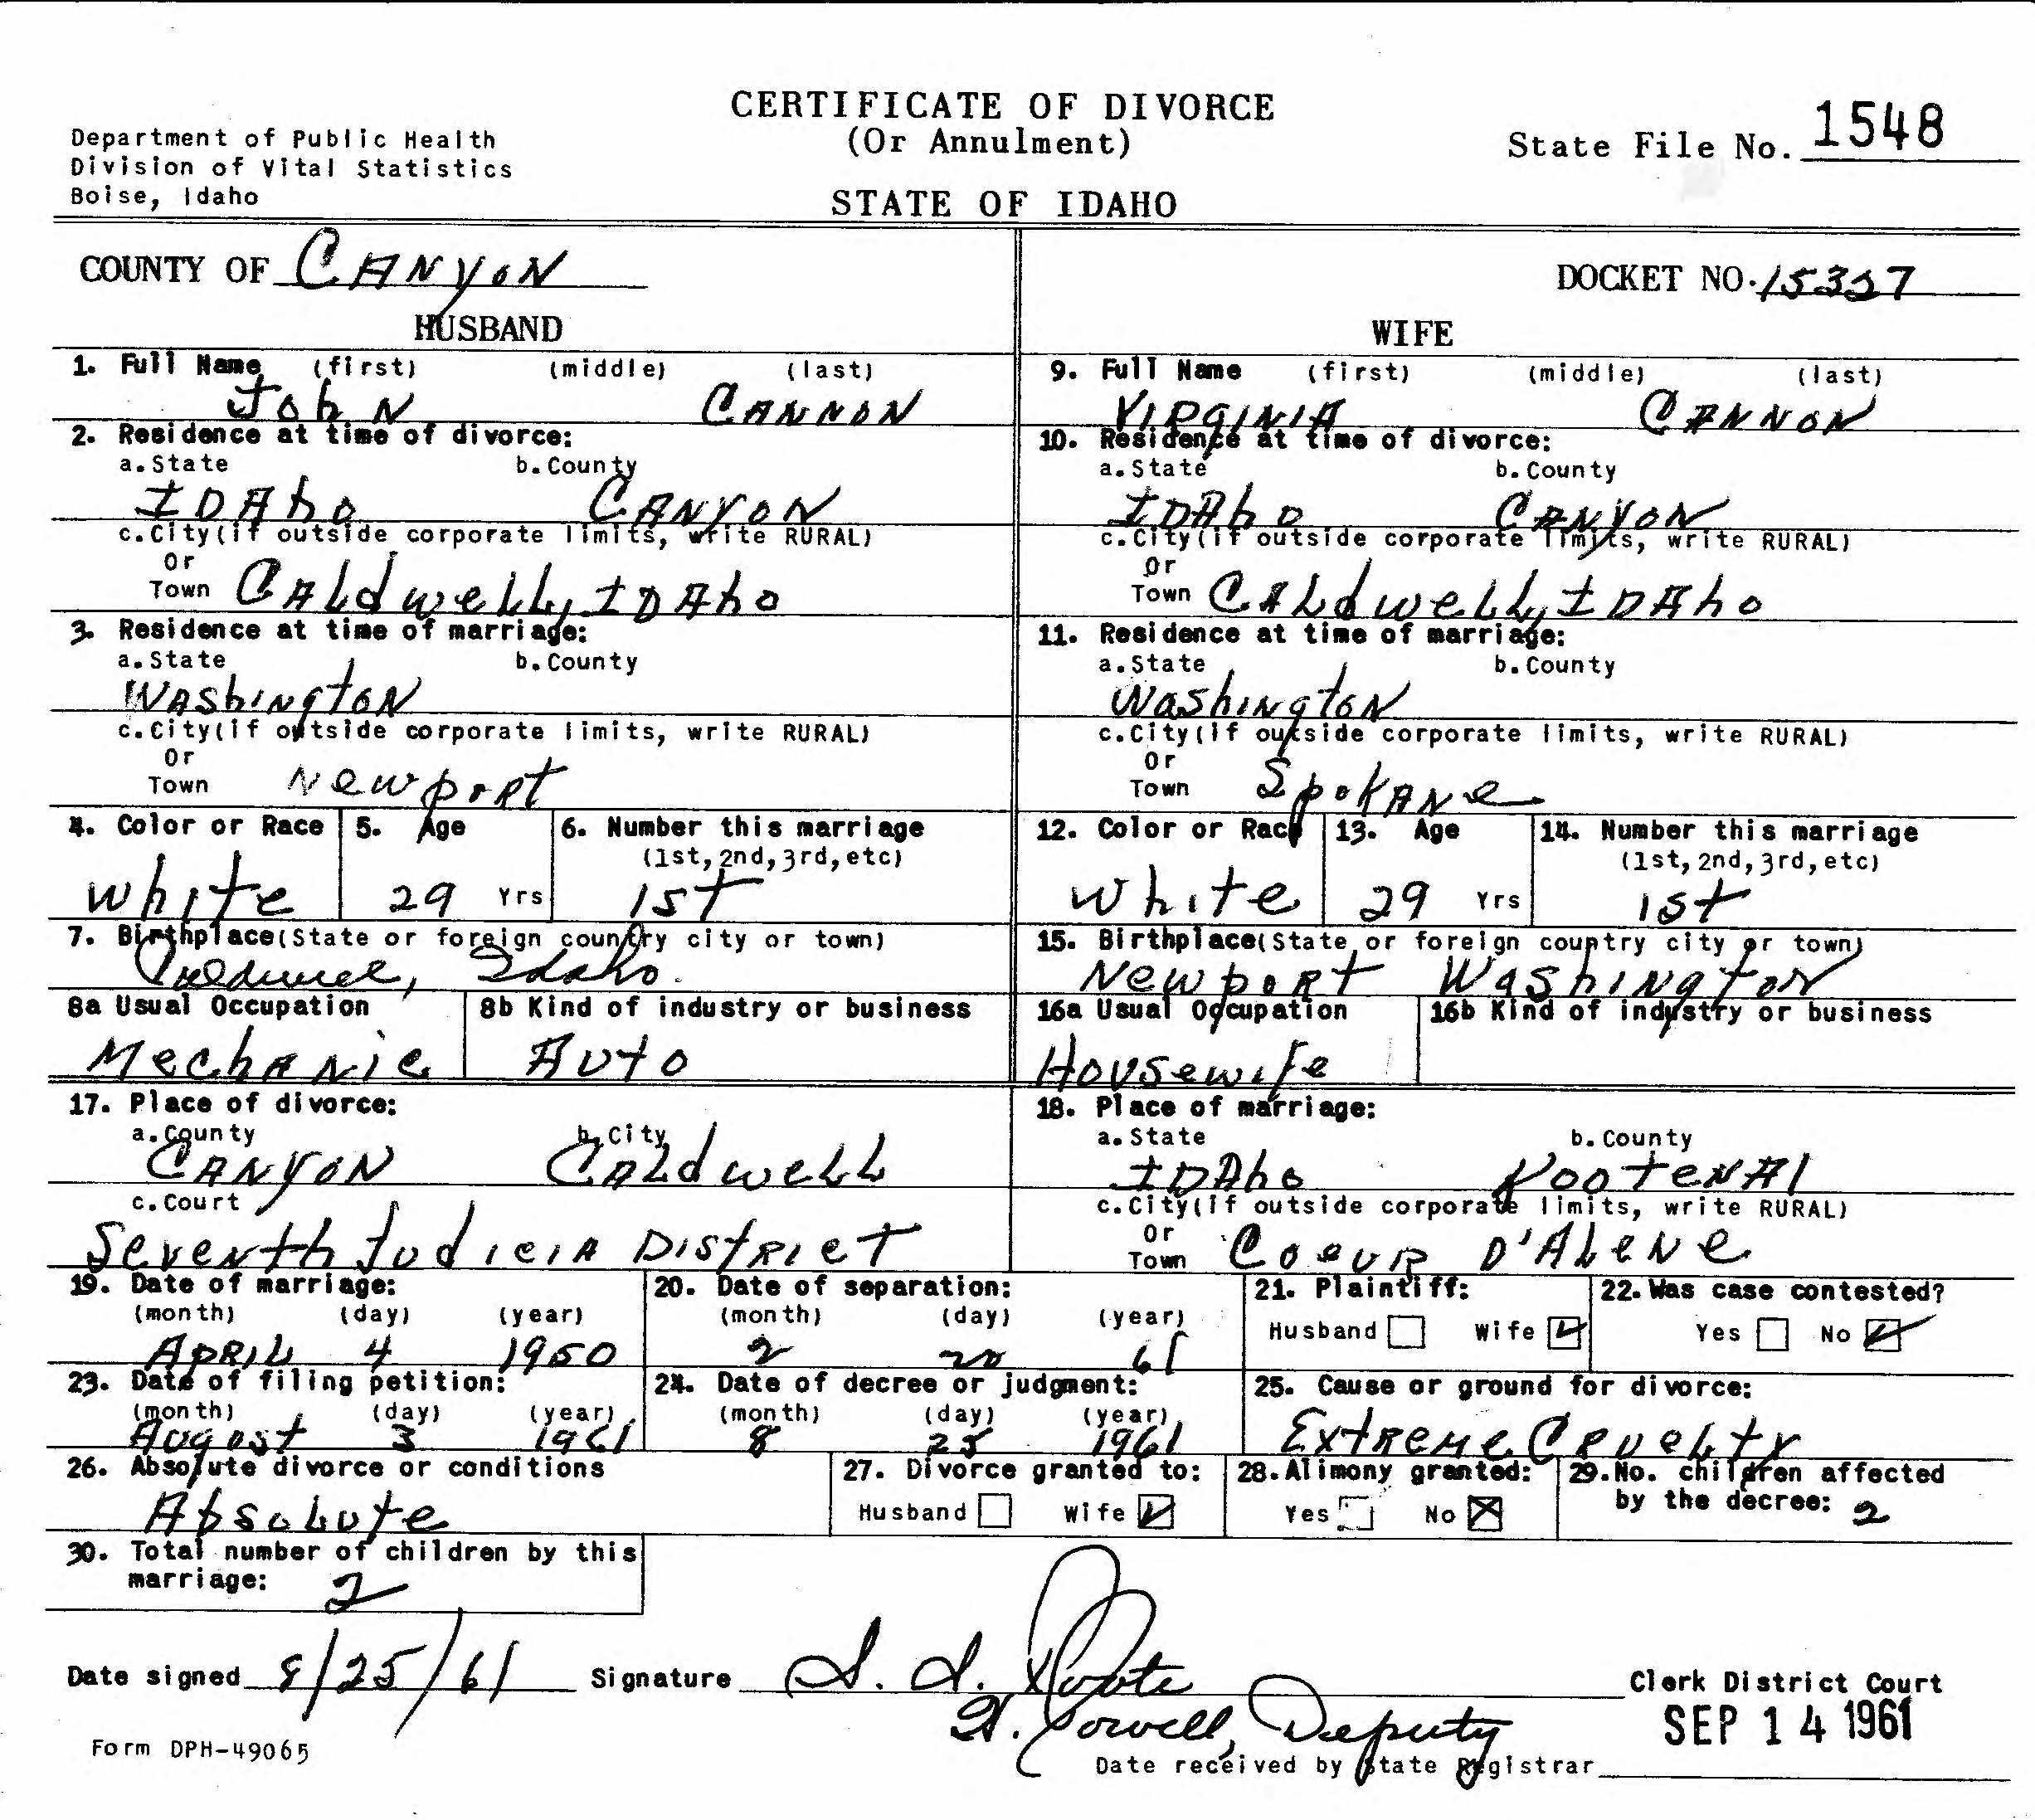 CERTIFICATE OF DIVORCE
(Or Annulment)
STATE OF IDAHO
Department of Public Health
Division of Vital Statistics
Boise, Idaho
State File No. 1548
COUNTY OF CANYON
DOCKET NO.
HUSBAND
1. Full Name (first) (middle) (last)
John CANNON
2. Residence at time of divorce:
a. State b. County
IDAho CANYON
c. City (if outside corporate limits, write RURAL)
Or
Town CALdwell, IDAho
3. Residence at time of marriage:
a. State b. County
WAShINgtON
c. City (if outside corporate limits, write RURAL)
Or
Town Newport
4. Color or Race 5. Age 6. Number this marriage
(1st, 2nd, 3rd, etc)
white 29 Yrs 1st
7. Birthplace (State or foreign country city or town)
Idaho.
8a Usual Occupation 8b Kind of industry or business
MechANic Auto
WIFE
9. Full Name (first) (middle) (last)
VIRGINIA CANNON
10. Residence at time of divorce:
a. State b. County
IDAho CANYON
c. City (if outside corporate limits, write RURAL)
Or
Town CALdwell, IDAho
11. Residence at time of marriage:
a. State b. County
WashINgtON
c. City (if outside corporate limits, write RURAL)
Or
Town SpokANe
12. Color or Race 13. Age 14. Number this marriage
(1st, 2nd, 3rd, etc)
white 29 Yrs 1st
15. Birthplace (State or foreign country city or town)
Newport WashINgtoN
16a Usual Occupation 16b Kind of industry or business
Housewife
17. Place of divorce:
a. County b. City
CANYON CALdwell
c. Court
SeveNth JudiciA DistRict
18. Place of marriage:
a. State b. County
IDAho KooteNAI
c. City (if outside corporate limits, write RURAL)
Or
Town Coeur D'ALeNe
19. Date of marriage:
(month) (day) (year)
APRIL 4 1950
20. Date of separation:
(month) (day) (year)
2 20 61
21. Plaintiff:
Husband Wife
22. Was case contested?
Yes No
23. Date of filing petition:
(month) (day) (year)
August 3 1961
24. Date of decree or judgment:
(month) (day) (year)
8 25 1961
25. Cause or ground for divorce:
ExtReMe CRueLty
26. Absolute divorce or conditions
AbsoLute
27. Divorce granted to:
Husband Wife
28. Alimony granted:
Yes No
29. No. children affected
by the decree: 2
30. Total number of children by this
marriage: 2
Date signed 8/25/61 Signature
Clerk District Court
Powell, Deputy
SEP 14 1961
Form DPH-49065
Date received by State Registrar